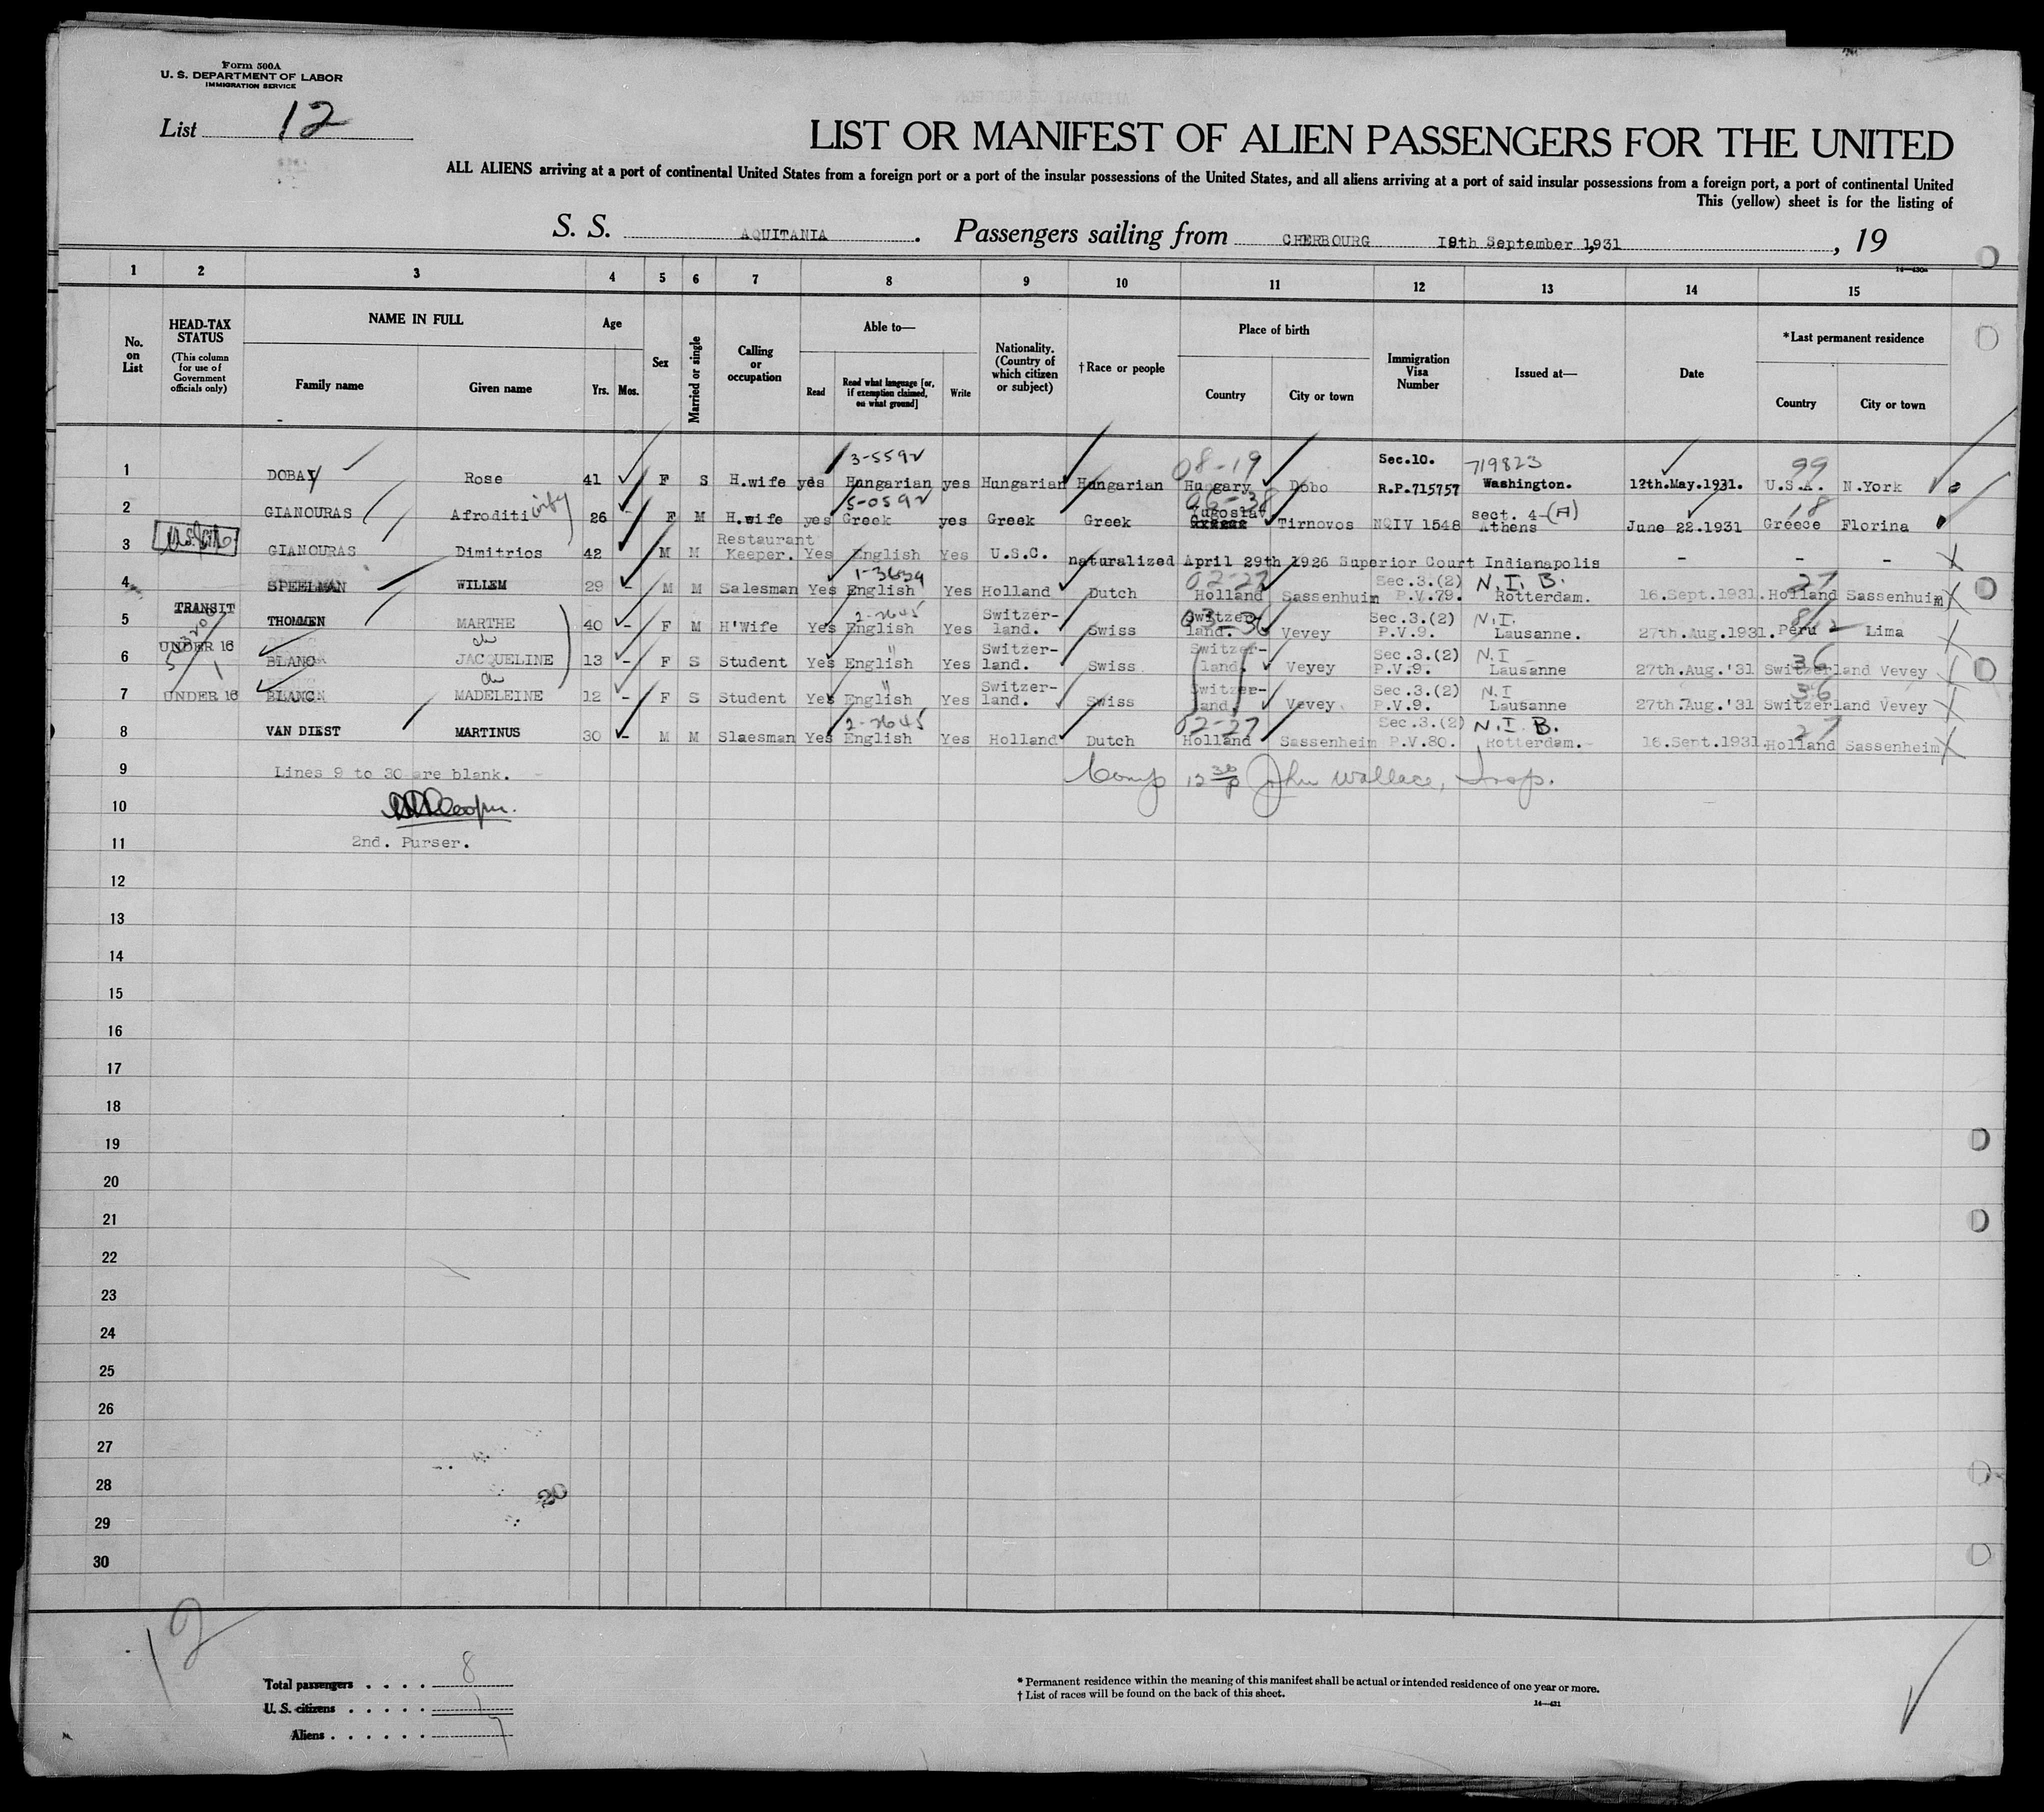 Form 500A
U. S. DEPARTMENT OF LABOR
IMMIGRATION SERVICE
List 12
LIST OR MANIFEST OF ALIEN PASSENGERS FOR THE UNITED
ALL ALIENS arriving at a port of continental United States from a foreign port or a port of the insular possessions of the United States, and all aliens arriving at a port of said insular possessions from a foreign port, a port of continental United
This (yellow) sheet is for the listing of
S. S. AQUITANIA . Passengers sailing from CHERBOURG 19th September 1931 , 19
14—430a
1 2 3 4 5 6 7 8 9 10 11 12 13 14 15
No. on List
HEAD-TAX STATUS
(This column for use of Government officials only)
NAME IN FULL
Family name
Given name
Age
Yrs. Mos.
Sex
Married or single
Calling or occupation
Able to—
Read
Read what language [or, if exemption claimed, on what ground]
Write
Nationality. (Country of which citizen or subject)
†Race or people
Place of birth
Country
City or town
Immigration Visa Number
Issued at—
Date
*Last permanent residence
Country
City or town
3-5592 08-19 Sec.10. 719823 99
1 DOBAY Rose 41 F S H.wife yes Hungarian yes Hungarian Hungarian Hugary Dobo R.P.715757 Washington. 12th.May.1931. U.S.A. N.York
5-0592 06-38 Yugoslav sect. 4-(A) 18
2 GIANOURAS Afroditi wife 26 F M H.wife yes Greek yes Greek Greek Greece Tirnovos NQIV 1548 Athens June 22.1931 Greece Florina
3 GIANOURAS Dimitrios 42 M M Restaurant Keeper. Yes English Yes U.S.C. naturalized April 29th 1926 Superior Court Indianapolis - - -
1-3639 02-27 Sec.3.(2) N.I. B. 27
4 SPEELMAN WILLEM 29 - M M Salesman Yes English Yes Holland Dutch Holland Sassenhuim P.V.79. Rotterdam. 16.Sept.1931. Holland Sassenhuim
TRANSIT 2-2645 03-36 Sec.3.(2) N.I. 8/12
5 THOMMEN MARTHE 40 - F M H'Wife Yes English Yes Switzer-land. Swiss Switzer-land. Vevey P.V.9. Lausanne. 27th.Aug.1931. Peru Lima
UNDER 16 " Sec.3.(2) N.I 36
6 BLANC JACQUELINE 13 - F S Student Yes English Yes Switzer-land. Swiss Switzer-land. Veyey P.V.9. Lausanne 27th.Aug.'31 Switzerland Vevey
" Sec.3.(2) N.I 36
7 UNDER 16 BLANC MADELEINE 12 - F S Student Yes English Yes Switzer-land. Swiss Switzer-land. Vevey P.V.9. Lausanne 27th.Aug.'31 Switzerland Vevey
2-2645 02-27 Sec.3.(2) N.I. B. 27
8 VAN DIEST MARTINUS 30 - M M Slaesman Yes English Yes Holland Dutch Holland Sassenheim P.V.80. Rotterdam. 16.Sept.1931. Holland Sassenheim
9 Lines 9 to 30 are blank. Comp 12 30/p John Wallace, Insp.
10
11 2nd. Purser.
12
13
14
15
16
17
18
19
20
21
22
23
24
25
26
27
28
29
30
12
Total passengers . . . . 8
U. S. citizens . . . . . 1
Aliens . . . . . . 7
* Permanent residence within the meaning of this manifest shall be actual or intended residence of one year or more.
† List of races will be found on the back of this sheet.
14—431